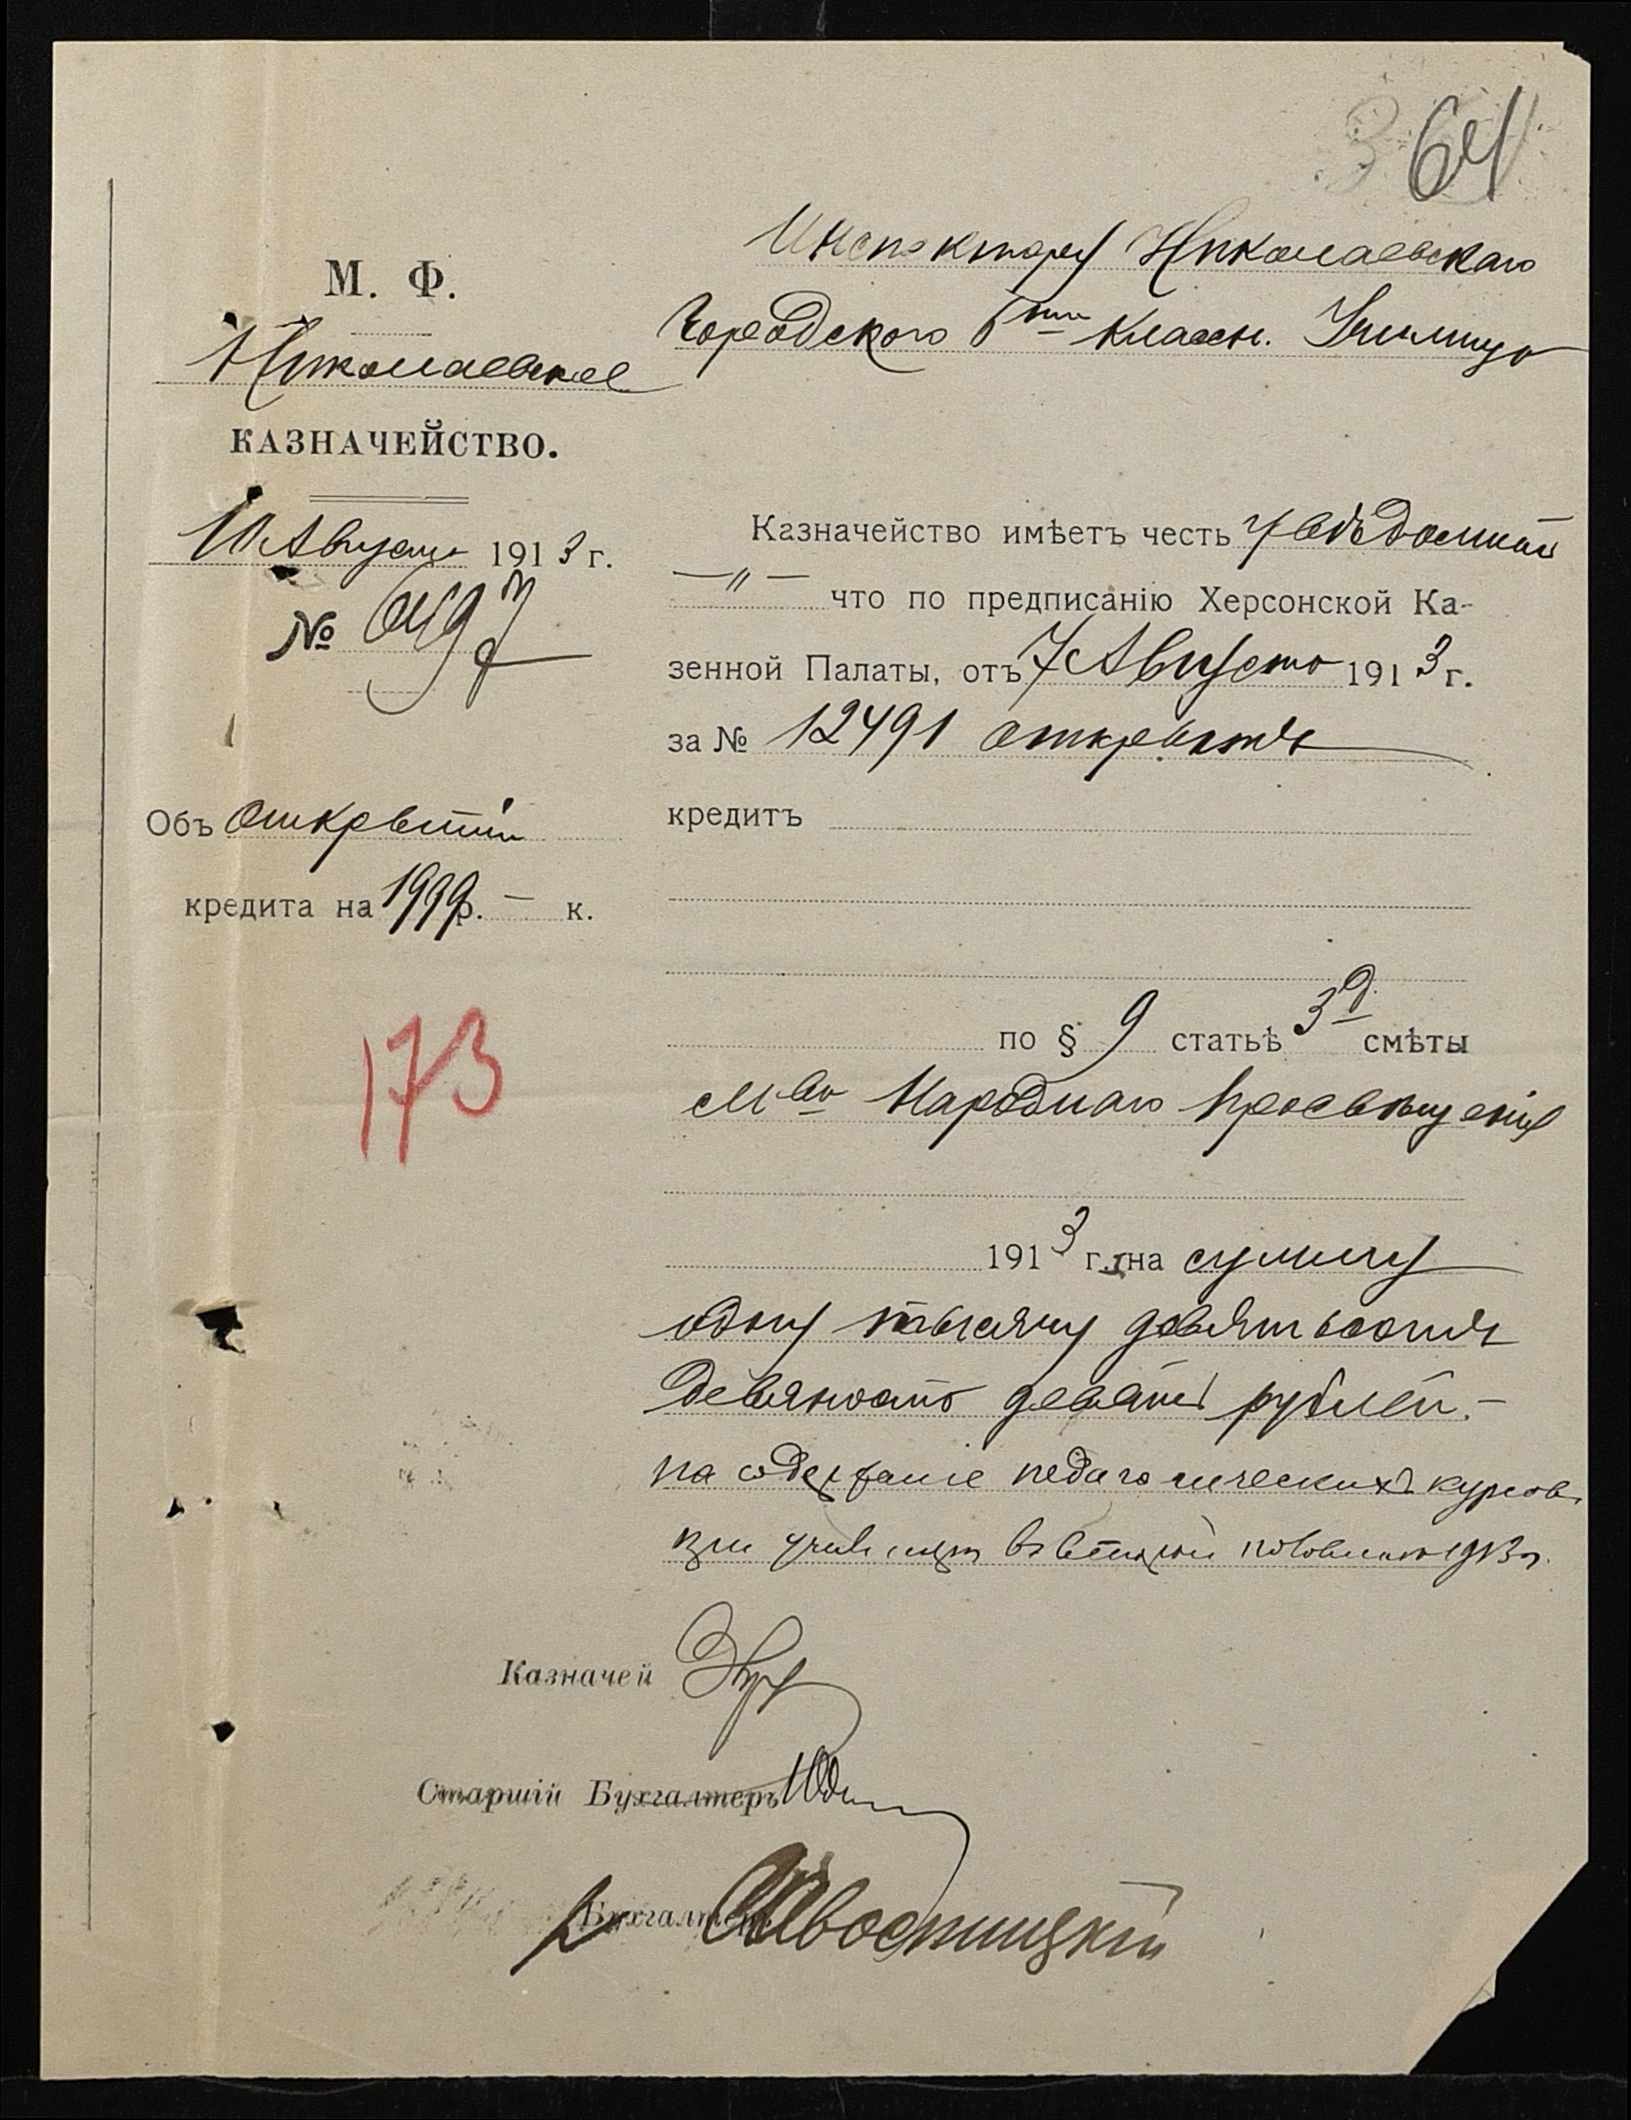 64
М. Ф.
Николаевское
КАЗНАЧЕЙСТВО.
10 Августа 1913 г.
№
Объ открытіи
кредита на 1999 р. — к.
173
Инспектору Николаевскаго
Городского классн. Училища
Казначейство имѣетъ честь увѣдомить
—〃— что по предписанію Херсонской Ка-
зенной Палаты, отъ 7 Августа 1913 г.
за № 12491 открытъ
кредитъ
по § 9 статьѣ 3 д. смѣты
М-ва Народнаго Просвѣщенія
1913 г. на сумму
одну тысячу девятьсотъ
девяносто девять рублей. —
на содержаніе педагогическихъ курсовъ
при училищѣ въ второй половинѣ 1913 г.
Казначей
Старшій Бухгалтеръ
Бухгалтеръ